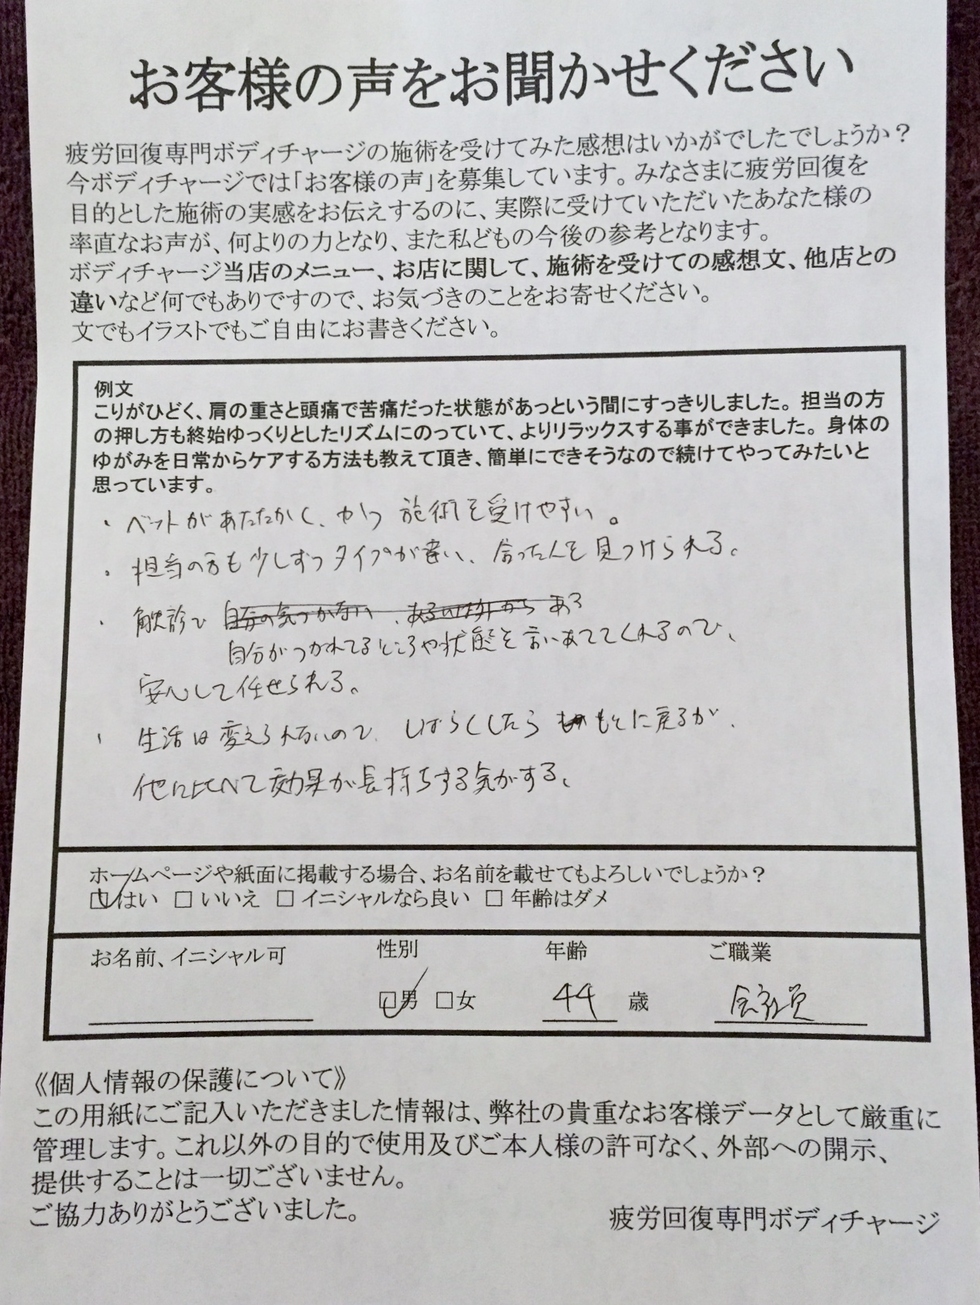 お客様の声をお聞かせください
疲労回復専門ボディチャージの施術を受けてみた感想はいかがでしたでしょうか？
今ボディチャージでは「お客様の声」を募集しています。みなさまに疲労回復を
目的とした施術の実感をお伝えするのに、実際に受けていただいたあなた様の
率直なお声が、何よりの力となり、また私どもの今後の参考となります。
ボディチャージ当店のメニュー、お店に関して、施術を受けての感想文、他店との
違いなど何でもありですので、お気づきのことをお寄せください。
文でもイラストでもご自由にお書きください。
例文
こりがひどく、肩の重さと頭痛で苦痛だった状態があっという間にすっきりしました。担当の方
の押し方も終始ゆっくりとしたリズムにのっていて、よりリラックスする事ができました。身体の
ゆがみを日常からケアする方法も教えて頂き、簡単にできそうなので続けてやってみたいと
思っています。
・ベットがあたたかく、かつ 施術を受けやすい。
・担当の方も少しずつタイプが違い、合った人を見つけられる。
・触診で 自分の気づかない、ある
自分がつかれてるところや状態を言いあててくれるので、
安心して任せられる。
・生活は変えられないので、しばらくしたら もとに戻るが、
他に比べて効果が長持ちする気がする。
ホームページや紙面に掲載する場合、お名前を載せてもよろしいでしょうか？
☑はい □いいえ □イニシャルなら良い □年齢はダメ
お名前、イニシャル可 性別 年齢 ご職業
☑男 □女 44 歳 会社員
《個人情報の保護について》
この用紙にご記入いただきました情報は、弊社の貴重なお客様データとして厳重に
管理します。これ以外の目的で使用及びご本人様の許可なく、外部への開示、
提供することは一切ございません。
ご協力ありがとうございました。
疲労回復専門ボディチャージ